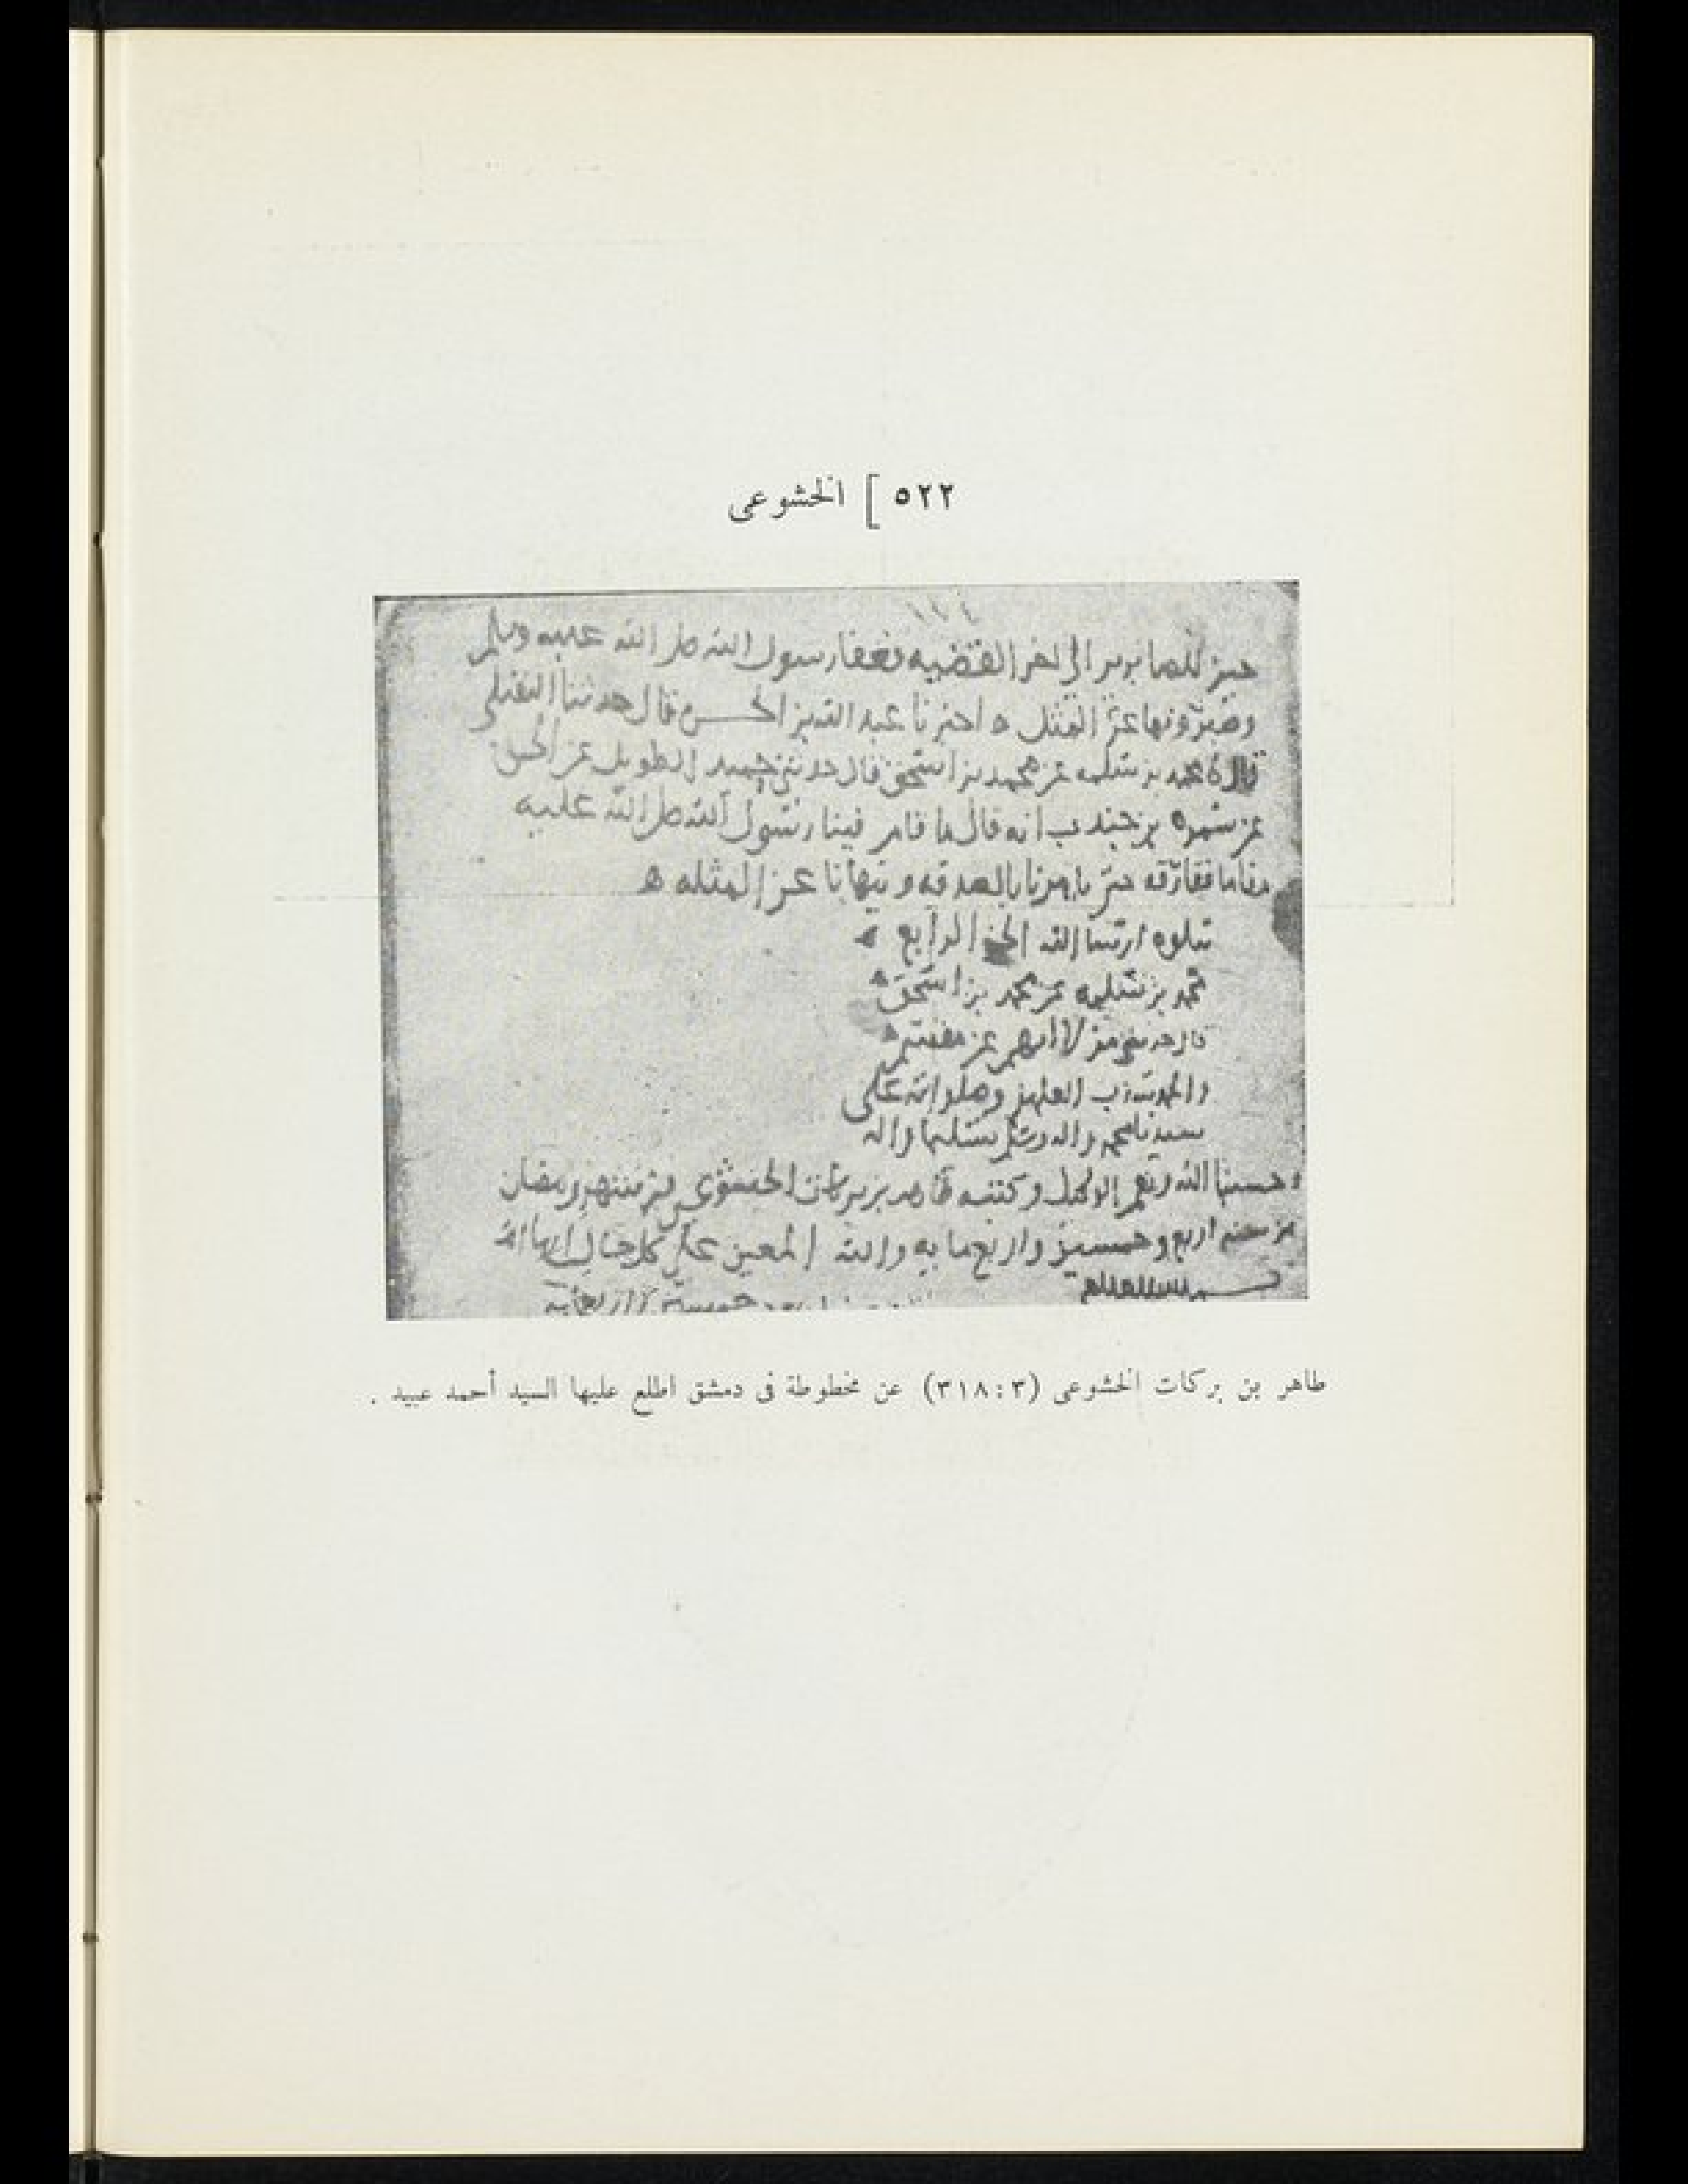 ٥٢٢ ] الخشوعى
١١٤
للصابرين الى اخر القضيه فعفا رسول الله صلى الله عليه وسلم
وصبر ونها عن المثل ه اخبرنا عبد الله بن الحسن قال حدثنا النفيلى
محمد بن سلمه عن محمد بن اسحق قال حدثنى حميد الطويل عن الحسن
عن سمره بن جندب انه قال ما قام فينا رسول الله صلى الله عليه
مقاما ففارقه حتى يامرنا بالصدقه وينهانا عن المثله ه
يتلوه ان شا الله الجز الرابع
محمد بن سلمه عن محمد بن اسحق
قال حدثنى من لا اتهم عن مقسم
والحمد لله رب العلمين وصلواته على
سيدنا محمد واله وسلم تسليما
وحسبنا الله ونعم الوكيل وكتبه طاهر بن بركات الخشوعى فى شهر رمضان
من سنه اربع وخمسين واربعمايه والله المعين على كل حال
طاهر بن بركات الخشوعى (٣ : ٣١٨) عن مخطوطة فى دمشق اطلع عليها السيد أحمد عبيد .